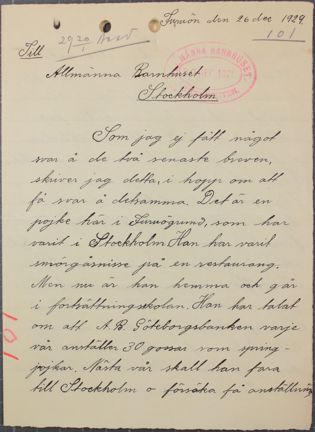 den 26 dec 1929
101
Till
Allmänna Barnhuset
Stockholm
ALLMÄNNA BARNHUSET
Som jag ej fått något
svar å de två senaste breven,
skriver jag detta, i hopp om att
få svar å detsamma. Det är en
pojke här i Furuögrund, som har
varit i Stockholm. Han har varit
smörgåsnisse på en restaurang.
Men nu är han hemma och går
i fortsättningsskolan. Han har talat
om att A.B. Göteborgsbanken varje
vår anställer 30 gossar som spring-
pojkar. Nästa vår skall han fara
till Stockholm o försöka få anställning
101